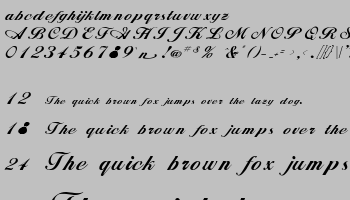 abcdefghijklmnopqrstuvwxyz
ABCDEFGHIJKLMNOPQRS
012345679
12 The quick brown fox jumps over the lazy dog.
1 The quick brown fox jumps over the
24 The quick brown fox jumps